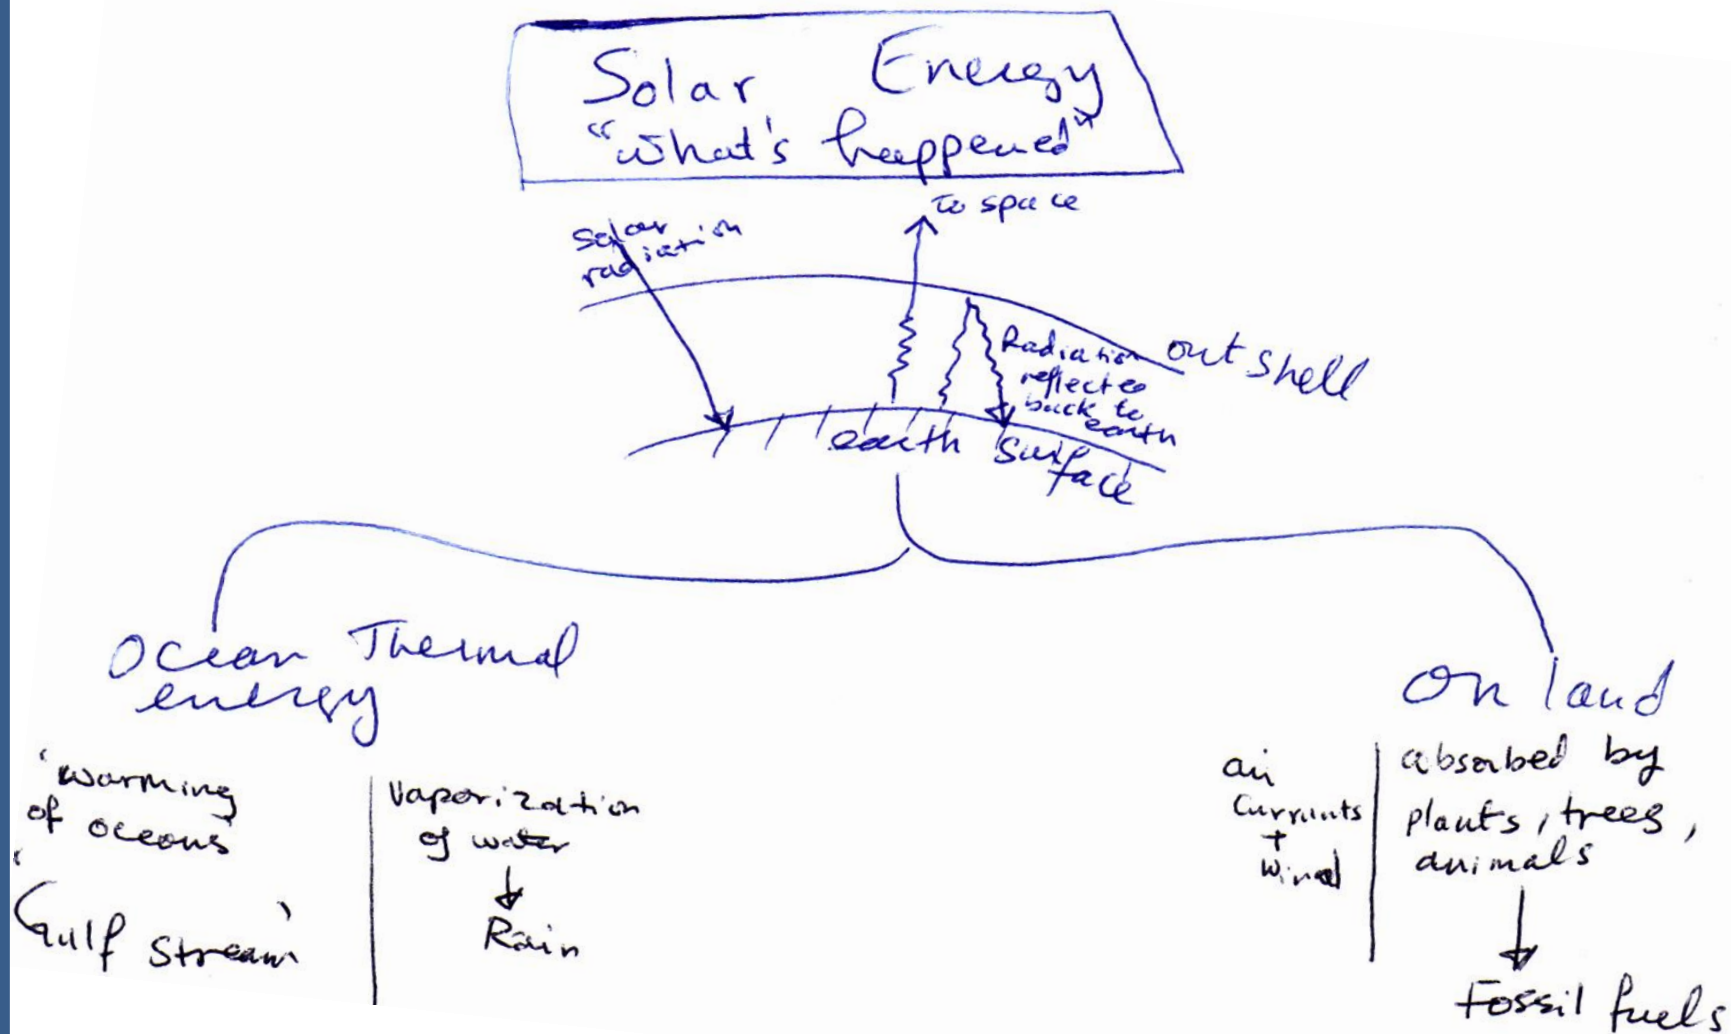 Solar Energy
"what's happened"
to space
Solar
radiation
Radiation
reflected
back to
earth
out shell
earth surface
Ocean Thermal
energy
'warming
of oceans
'Gulf Stream'
Vaporization
of water
Rain
on land
air
Currents
+
wind
absorbed by
plants, trees,
animals
Fossil fuels